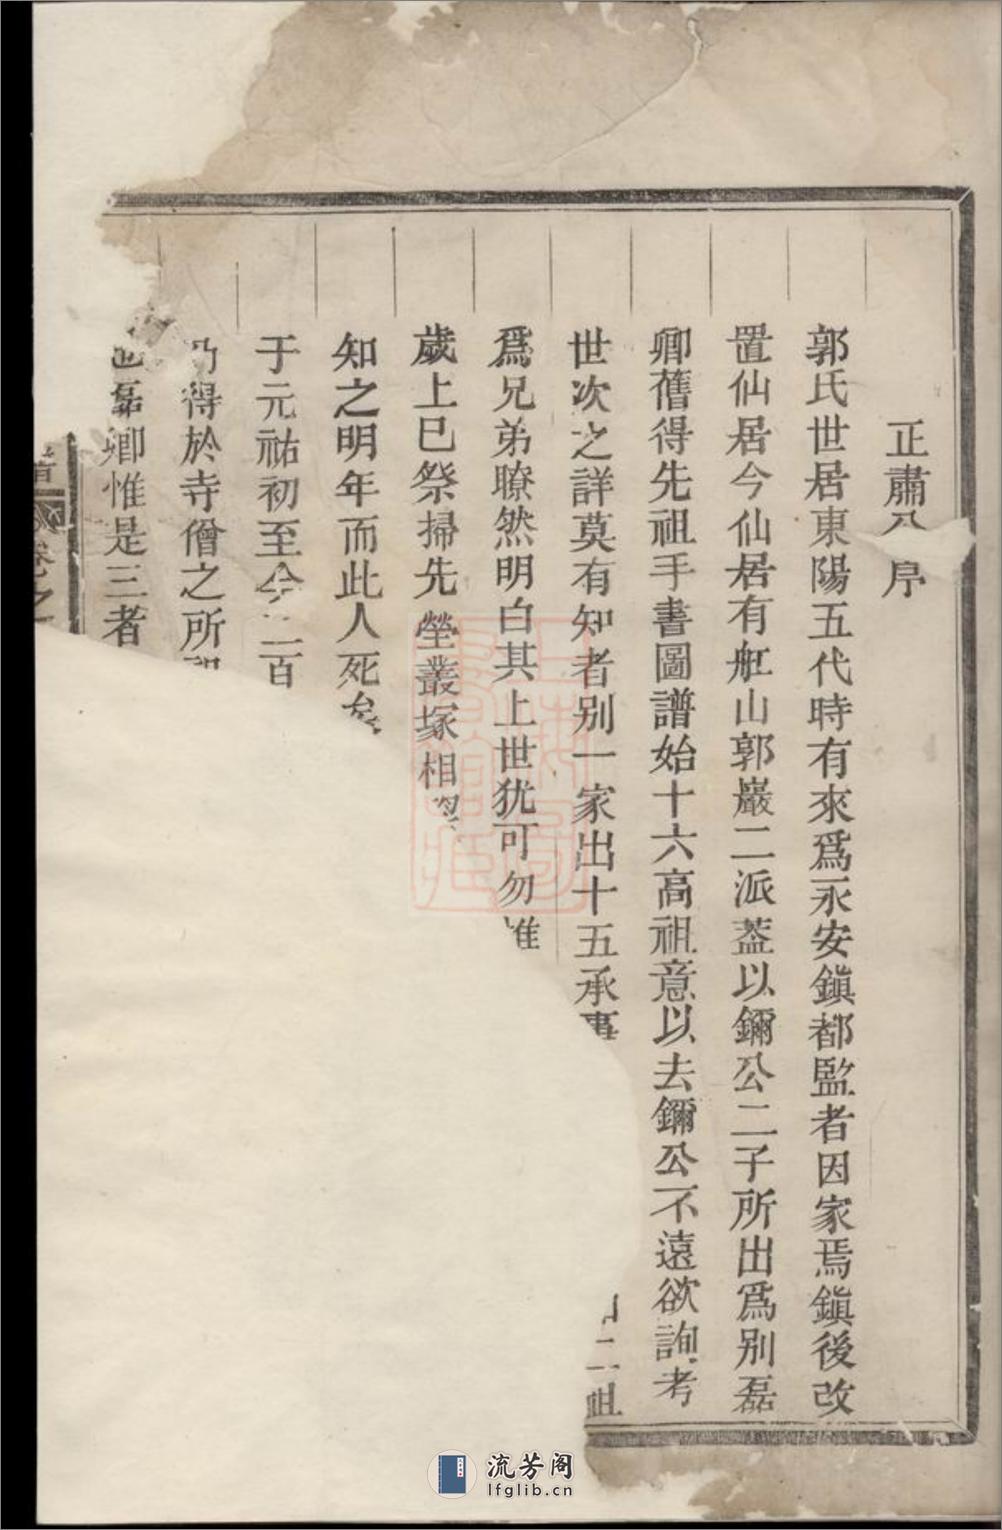 正肅公序
郭氏世居東陽五代時有來爲永安鎭都監者因家焉鎭後改
置仙居今仙居有舡山郭巖二派葢以鑈公二子所出爲別磊
卿舊得先祖手書圖譜始十六高祖意以去鑈公不遠欲詢考
世次之詳莫有知者別一家出十五承事
二祖
爲兄弟暸然明白其上世犹可勿惟
歲上巳祭掃先塋叢塚相
知之明年而此人死矣
于元祐初至今二百
乃得於寺僧之所
也磊卿惟是三者
首
卷之
流芳阁
lfglib.cn